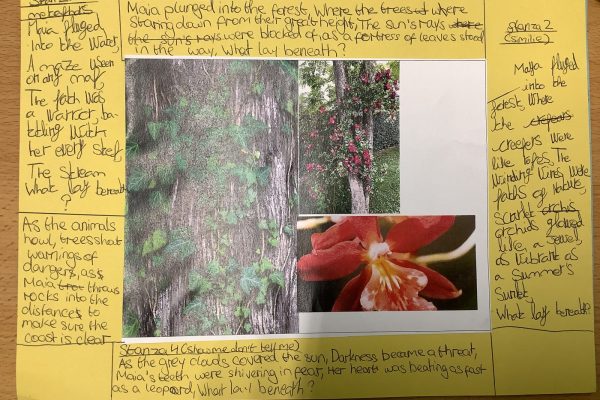 metaphors
Maia plunged
into the water,
A maze
on any map,
The path was
a warrior, ba-
ttling with
her every step,
The stream
What lay beneath
?
Maia plunged into the forest, Where the trees where
Staring down from their great height, The sun's rays where
the sun's rays were blocked of as a fortress of leaves stood
in the way, What lay beneath?
Stanza 2
(simile)
Maia plunged
into the
forest, Where
the
creepers were
like ropes, The
winding vines were
paths of nature,
scarlet orchis
orchids glowed
like a jewel,
as vibrant as
a summer's
sunset
What lay beneath?
As the animals
howl, trees shout
warnings of
dangers, as
Maia throws
rocks into the
distances to
make sure the
coast is clear
Stanza 4 (show me don't tell me)
As the grey clouds covered the sun, Darkness became a threat,
Maia's teeth were shivering in fear, Her heart was beating as fast
as a leopard, What lay beneath?